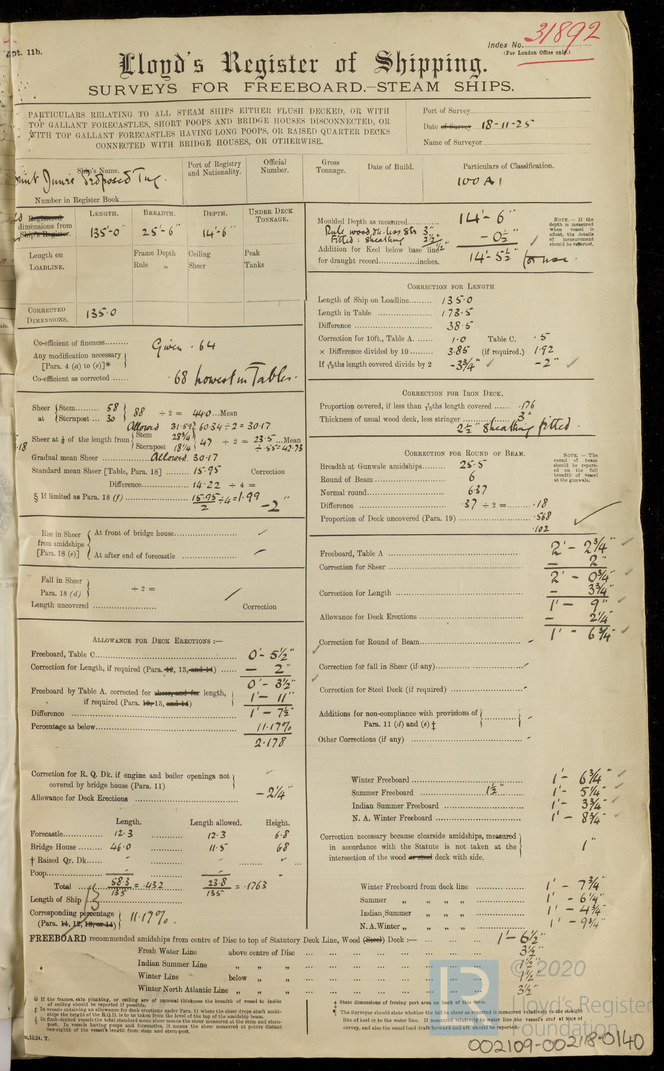 Rpt. 11b.
Index No. 31892
(For London Office only.)
Lloyd's Register of Shipping.
SURVEYS FOR FREEBOARD.—STEAM SHIPS.
PARTICULARS RELATING TO ALL STEAM SHIPS EITHER FLUSH DECKED, OR WITH
TOP GALLANT FORECASTLES, SHORT POOPS AND BRIDGE HOUSES DISCONNECTED, OR
WITH TOP GALLANT FORECASTLES HAVING LONG POOPS, OR RAISED QUARTER DECKS
CONNECTED WITH BRIDGE HOUSES, OR OTHERWISE.
Port of Survey
Date of Survey 18-11-25
Name of Surveyor
Ship's Name.
Port of Registry and Nationality.
Official Number.
Gross Tonnage.
Date of Build.
Particulars of Classification.
Proposed Tug.
100A1
Number in Register Book
Registered dimensions from Ship's Register.
LENGTH. BREADTH. DEPTH. UNDER DECK TONNAGE.
135'-0" 25'-6" 14'-6"
Length on LOADLINE.
Frame Depth Ceiling Peak
Rule " Sheer Tanks
CORRECTED DIMENSIONS. 135.0
Moulded Depth as measured 14'-6"
Rule wood dk. less str 3"
Fitted: sheathing 2½"
– 0½"
Addition for Keel below base line for draught record......inches.
14'-5½"
NOTE.—If the depth is measured when vessel is afloat, the details of measurement should be reported.
Co-efficient of fineness Given .64
Any modification necessary [Para. 4 (a) to (e)]*
Co-efficient as corrected .68 lowest in Tables.
Sheer at { Stem 58 Sternpost 30 } 88 ÷ 2 = 44.0 Mean
Allowed 31.59 60.34 ÷ 2 = 30.17
Sheer at ⅛ of the length from { Stem 28¾ Sternpost 18¼ } 47 ÷ 2 = 23.5 Mean
÷ .55 = 42.73
Gradual mean Sheer Allowed 30.17
Standard mean Sheer [Table, Para. 18] 15.95 Correction
Difference 14.22 ÷ 4 =
§ If limited as Para. 18 (f) 15.95/2 ÷ 4 = 1.99 –2"
Rise in Sheer from amidships [Para. 18 (e)]
At front of bridge house
At after end of forecastle
Fall in Sheer Para. 18 (d) ÷ 2 =
Length uncovered Correction
ALLOWANCE FOR DECK ERECTIONS:—
Freeboard, Table C. 0'-5½"
Correction for Length, if required (Para. 12, 13, and 14) – 2"
0'-3½"
Freeboard by Table A. corrected for sheer, and for length, if required (Para. 12, 13, and 14) 1'-11"
Difference 1'-7½"
Percentage as below 11.17%
2.178
Correction for R. Q. Dk. if engine and boiler openings not covered by bridge house (Para. 11)
Allowance for Deck Erections –2¼"
Length. Length allowed. Height.
Forecastle 12.3 12.3 6.8
Bridge House 46.0 11.5 68
† Raised Qr. Dk.
Poop
Total 58.3 = .432 23.8 = .1763
Length of Ship 135 135
Corresponding percentage (Para. 11, 12, 13, or 14) 11.17%.
CORRECTION FOR LENGTH
Length of Ship on Loadline 135.0
Length in Table 173.5
Difference 38.5
Correction for 10ft., Table A. 1.0 Table C. .5
× Difference divided by 10 3.85 (if required.) 1.92
If 6/10ths length covered divide by 2 –3¾" –2"
CORRECTION FOR IRON DECK.
Proportion covered, if less than 7/10ths length covered .176
Thickness of usual wood deck, less stringer 3"
2½" sheathing fitted.
CORRECTION FOR ROUND OF BEAM.
Breadth at Gunwale amidships 25.5
Round of Beam 6
Normal round 6.37
Difference .37 ÷ 2 = .18
Proportion of Deck uncovered (Para. 19) .568
.102
NOTE.—The round of beam should be reported on the full breadth of vessel at the gunwale.
Freeboard, Table A 2'-2¾"
Correction for Sheer – 2"
2'-0¾"
Correction for Length – 3¾"
1'-9"
Allowance for Deck Erections – 2¼"
1'-6¾"
Correction for Round of Beam
Correction for fall in Sheer (if any)
Correction for Steel Deck (if required)
Additions for non-compliance with provisions of Para. 11 (d) and (e) ‡
Other Corrections (if any)
Winter Freeboard 1'-6¾"
Summer Freeboard 1½" 1'-5¼"
Indian Summer Freeboard 1'-3¾"
N. A. Winter Freeboard 1'-8¾"
Correction necessary because clearside amidships, measured in accordance with the Statute is not taken at the intersection of the wood or steel deck with side. 1"
Winter Freeboard from deck line 1'-7¾"
Summer " " " " 1'-6¼"
Indian Summer " " " 1'-4¾"
N. A. Winter " " " " 1'-9¾"
FREEBOARD recommended amidships from centre of Disc to top of Statutory Deck Line, Wood (Steel) Deck:— 1'-6½"
Fresh Water Line above centre of Disc 3½"
Indian Summer Line " " " 1½"
Winter Line below " " 1½"
Winter North Atlantic Line " " " 3½"
‡ State dimensions of freeing port area on back of this form.
¶ The Surveyor should state whether the fall in sheer as reported is measured relatively to the straight line of keel or to the water line. If measured relatively to water line the vessel's draft at time of survey, and also the usual load draft forward and aft should be reported.
© 2020
Lloyd's Register
Foundation
002109-002118-0140